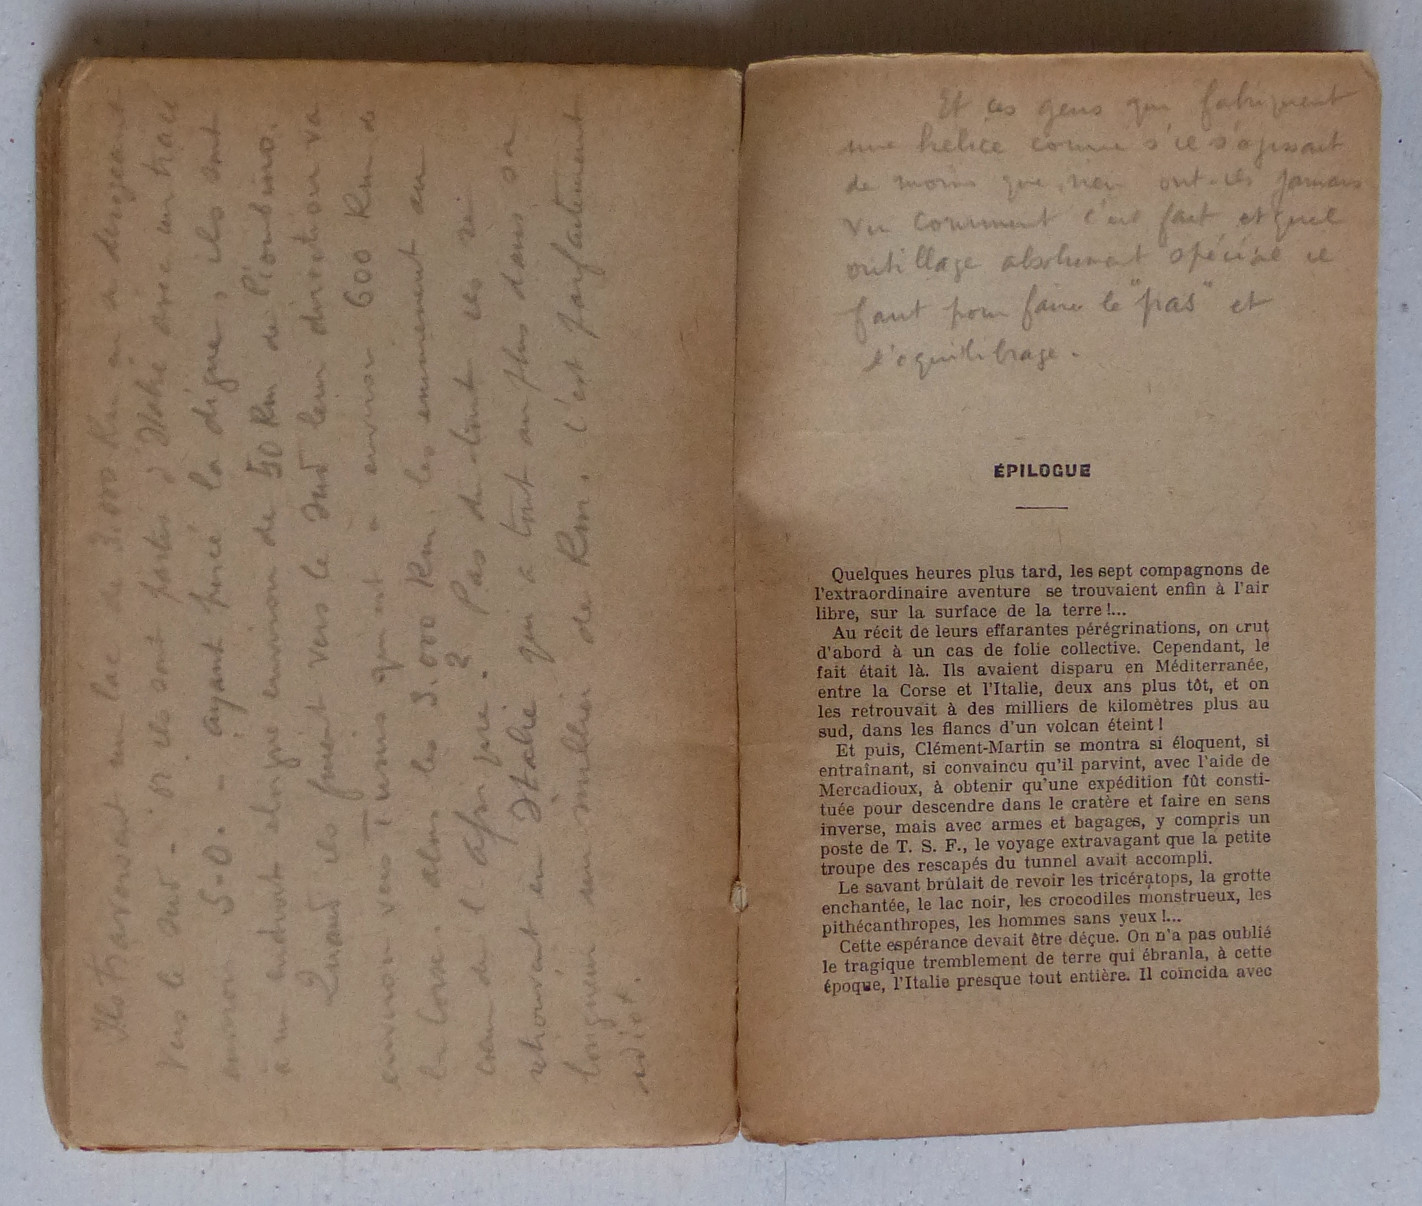 Ils traversent un lac de 3.000 Km en se dirigeant
vers le Sud - or ils sont partis d'Italie avec un tracé
environ S-O. - ayant percé la digue, ils sont
à un endroit éloigné environ de 50 Km de Piombino.
Quand ils fuient vers le Sud leur direction va
environ vers Tunis qui est à environ 600 Km de
la Corse. alors les 3.000 Km. les emmènent au
cœur de l'Afrique. ? Pas du tout ils se
retrouvent en Italie qui a tout au plus dans sa
longueur un millier de Km. c'est parfaitement
idiot.
Et ces gens qui fabriquent
une helice comme s'il s'agissait
de moins que rien ont-ils jamais
vu comment c'est fait et quel
outillage absolument spécial il
faut pour faire le "pas" et
l'equilibrage.
ÉPILOGUE
Quelques heures plus tard, les sept compagnons de
l'extraordinaire aventure se trouvaient enfin à l'air
libre, sur la surface de la terre !...
Au récit de leurs effarantes pérégrinations, on crut
d'abord à un cas de folie collective. Cependant, le
fait était là. Ils avaient disparu en Méditerranée,
entre la Corse et l'Italie, deux ans plus tôt, et on
les retrouvait à des milliers de kilomètres plus au
sud, dans les flancs d'un volcan éteint !
Et puis, Clément-Martin se montra si éloquent, si
entraînant, si convaincu qu'il parvint, avec l'aide de
Mercadioux, à obtenir qu'une expédition fût consti-
tuée pour descendre dans le cratère et faire en sens
inverse, mais avec armes et bagages, y compris un
poste de T. S. F., le voyage extravagant que la petite
troupe des rescapés du tunnel avait accompli.
Le savant brûlait de revoir les tricératops, la grotte
enchantée, le lac noir, les crocodiles monstrueux, les
pithécanthropes, les hommes sans yeux !...
Cette espérance devait être déçue. On n'a pas oublié
le tragique tremblement de terre qui ébranla, à cette
époque, l'Italie presque tout entière. Il coïncida avec